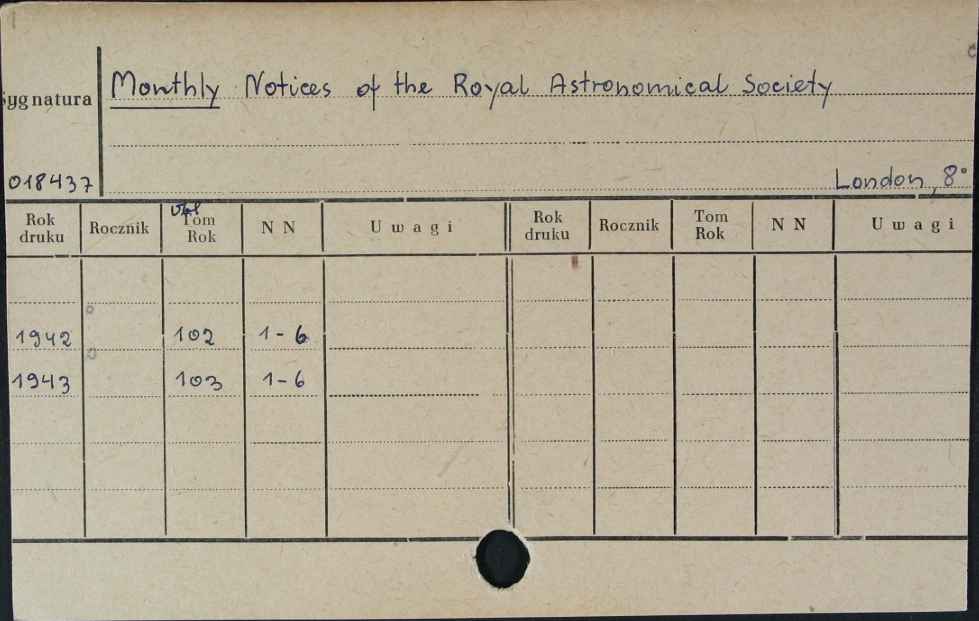 Monthly Notices of the Royal Astronomical Society
ygnatura
018437
London, 8°
Rok druku Rocznik Vol. Tom Rok N N Uwagi Rok druku Rocznik Tom Rok N N Uwagi
1942 102 1-6
1943 103 1-6